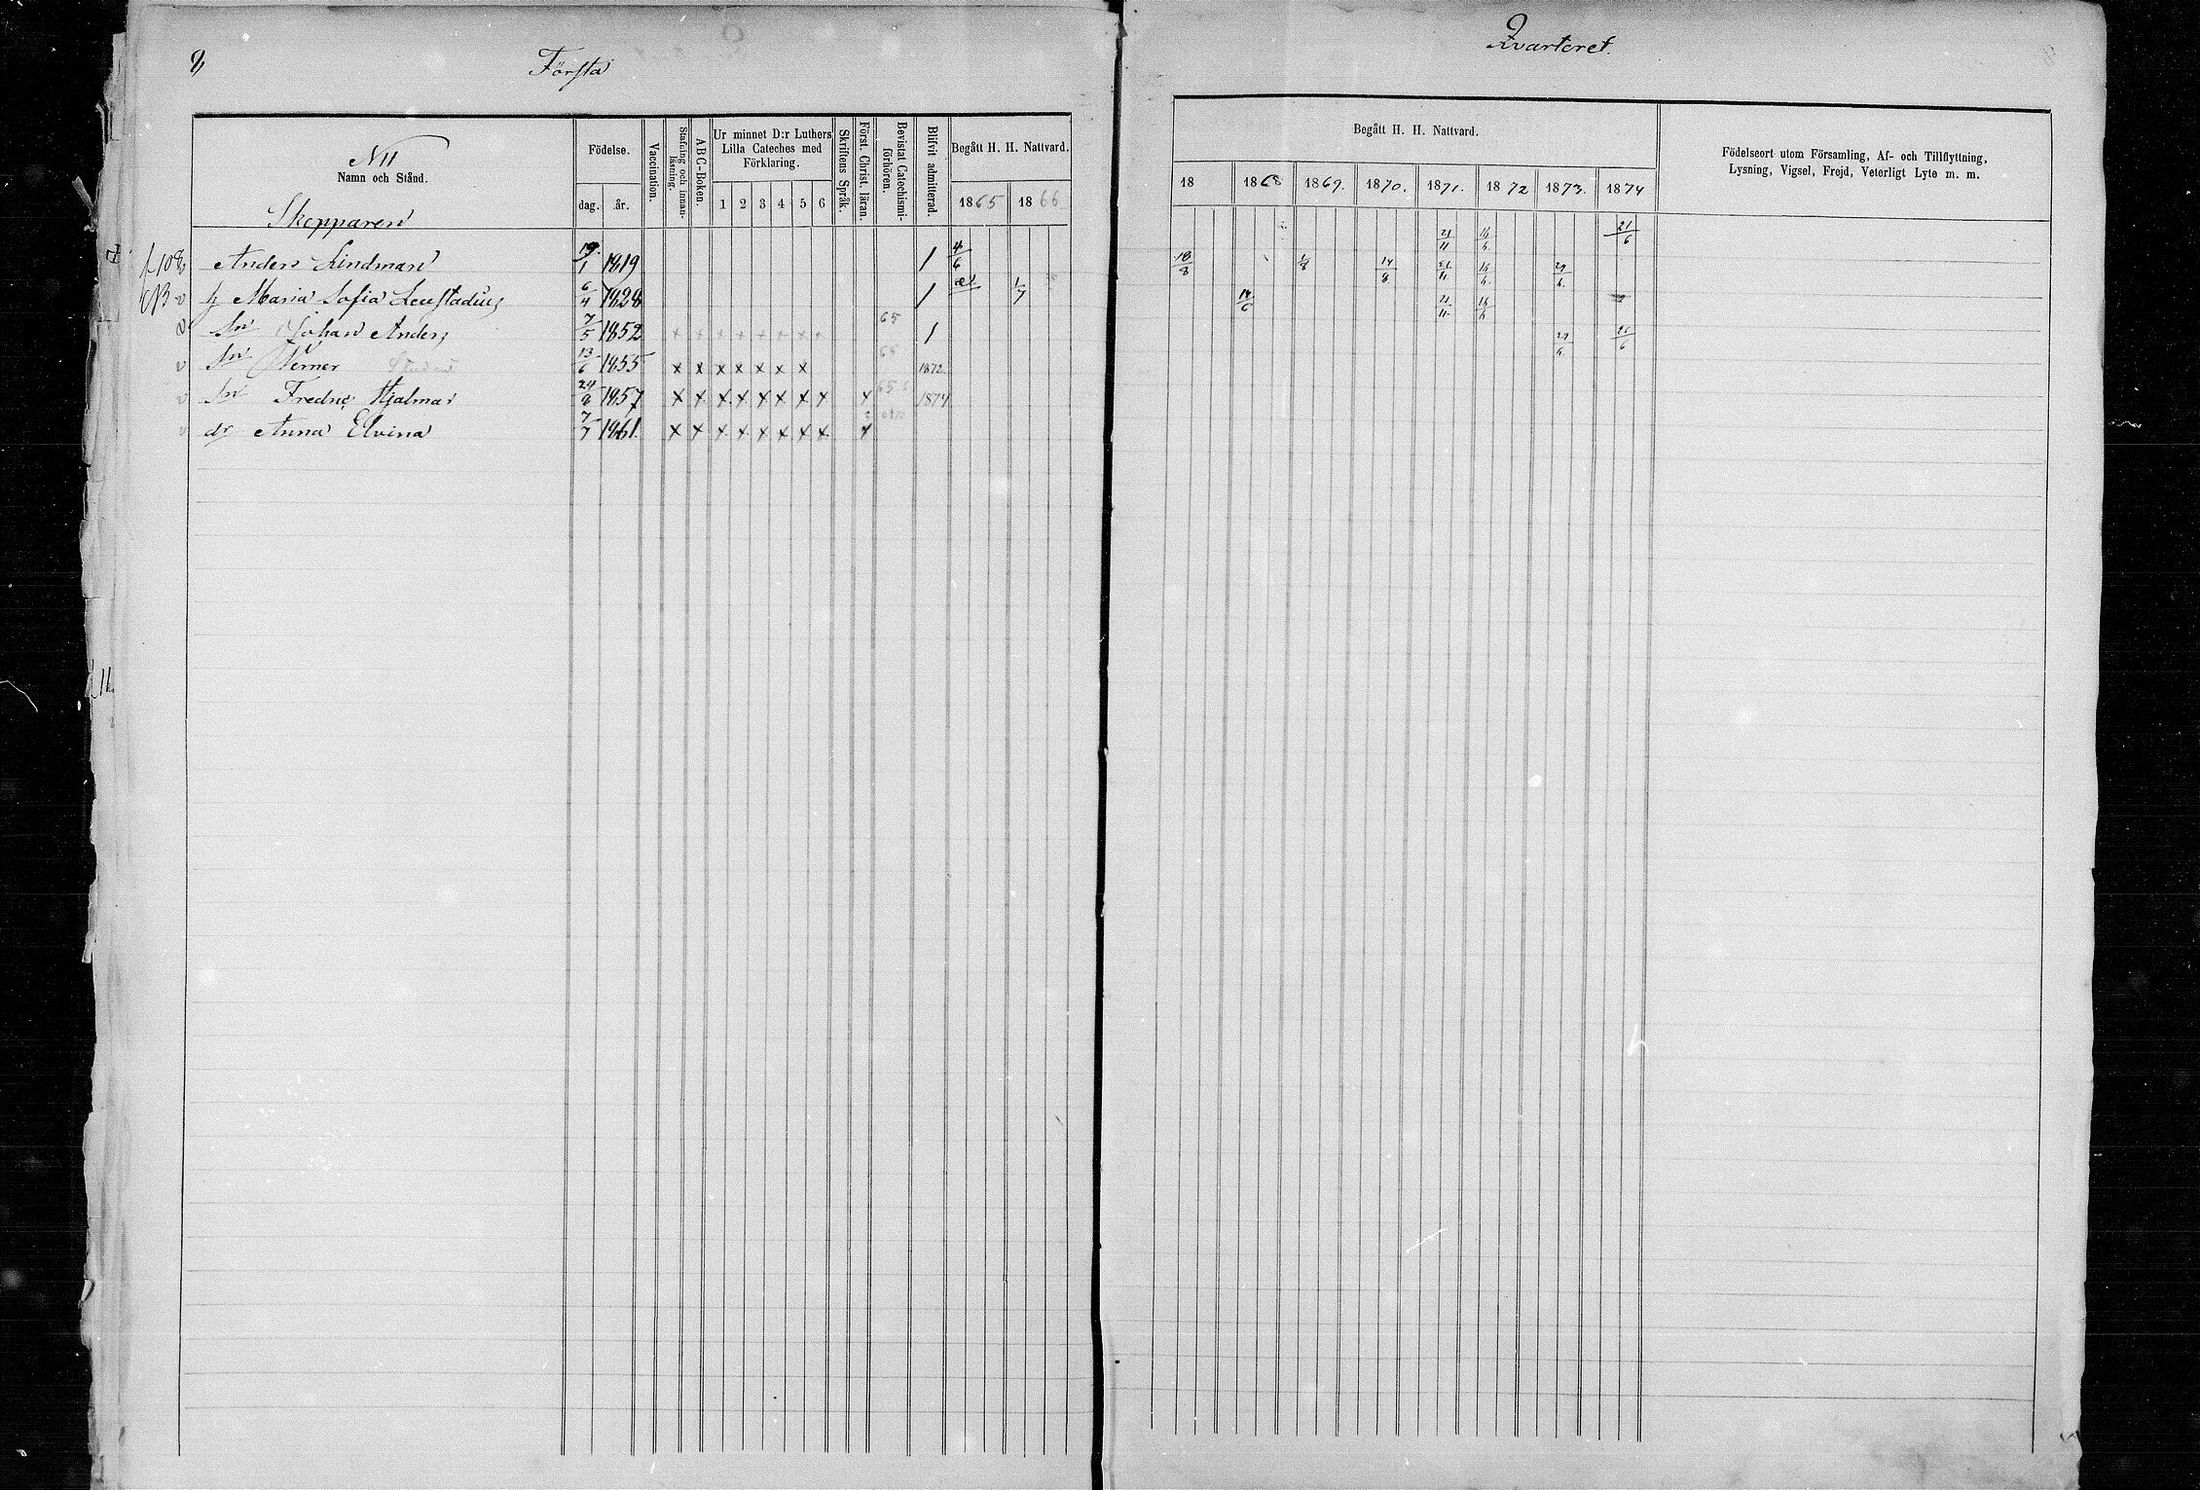 8
Första
Qvarteret.
N 11
Namn och Stånd.
Födelse.
dag. år.
Vaccination.
Stafning och innanläsning.
ABC-Boken.
Ur minnet D:r Luthers
Lilla Cateches med
Förklaring.
1 2 3 4 5 6
Skriftens Språk.
Först. Christ. läran.
Bevistat Catechismiförhören.
Blifvit admitterad.
Begått H. H. Nattvard.
1865 1866
Begått H. H. Nattvard.
18 1868 1869. 1870. 1871. 1872 1873. 1874
Födelseort utom Församling, Af- och Tillflyttning,
Lysning, Vigsel, Frejd, Veterligt Lyte m. m.
Skepparen
21/11 16/6 21/6
Anders Lindman 19/1 1819 1 4/6 18/8 1/8 14/8 21/11 16/6 29/6
h Maria Sofia 6/4 1828 1 1/7 14/6 21/11 16/6
Sn Johan Anders 7/5 1852 x x x x x x x x 65 1 29/6 21/6
Sn Verner 13/6 1855 x x x x x x x 1872
Sn Fredric Hjalmar 24/9 1857 x x x x x x x x x 1874
dr Anna Elvina 7/7 1861. x x x x x x x x x
11.